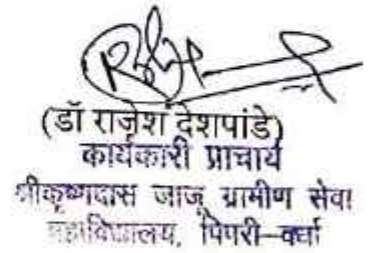 (डॉ राजेश देशपांडे)
कार्यकारी प्राचार्य
श्रीकृष्णदास जाजू ग्रामीण सेवा
महाविद्यालय, पिपरी–वर्धा